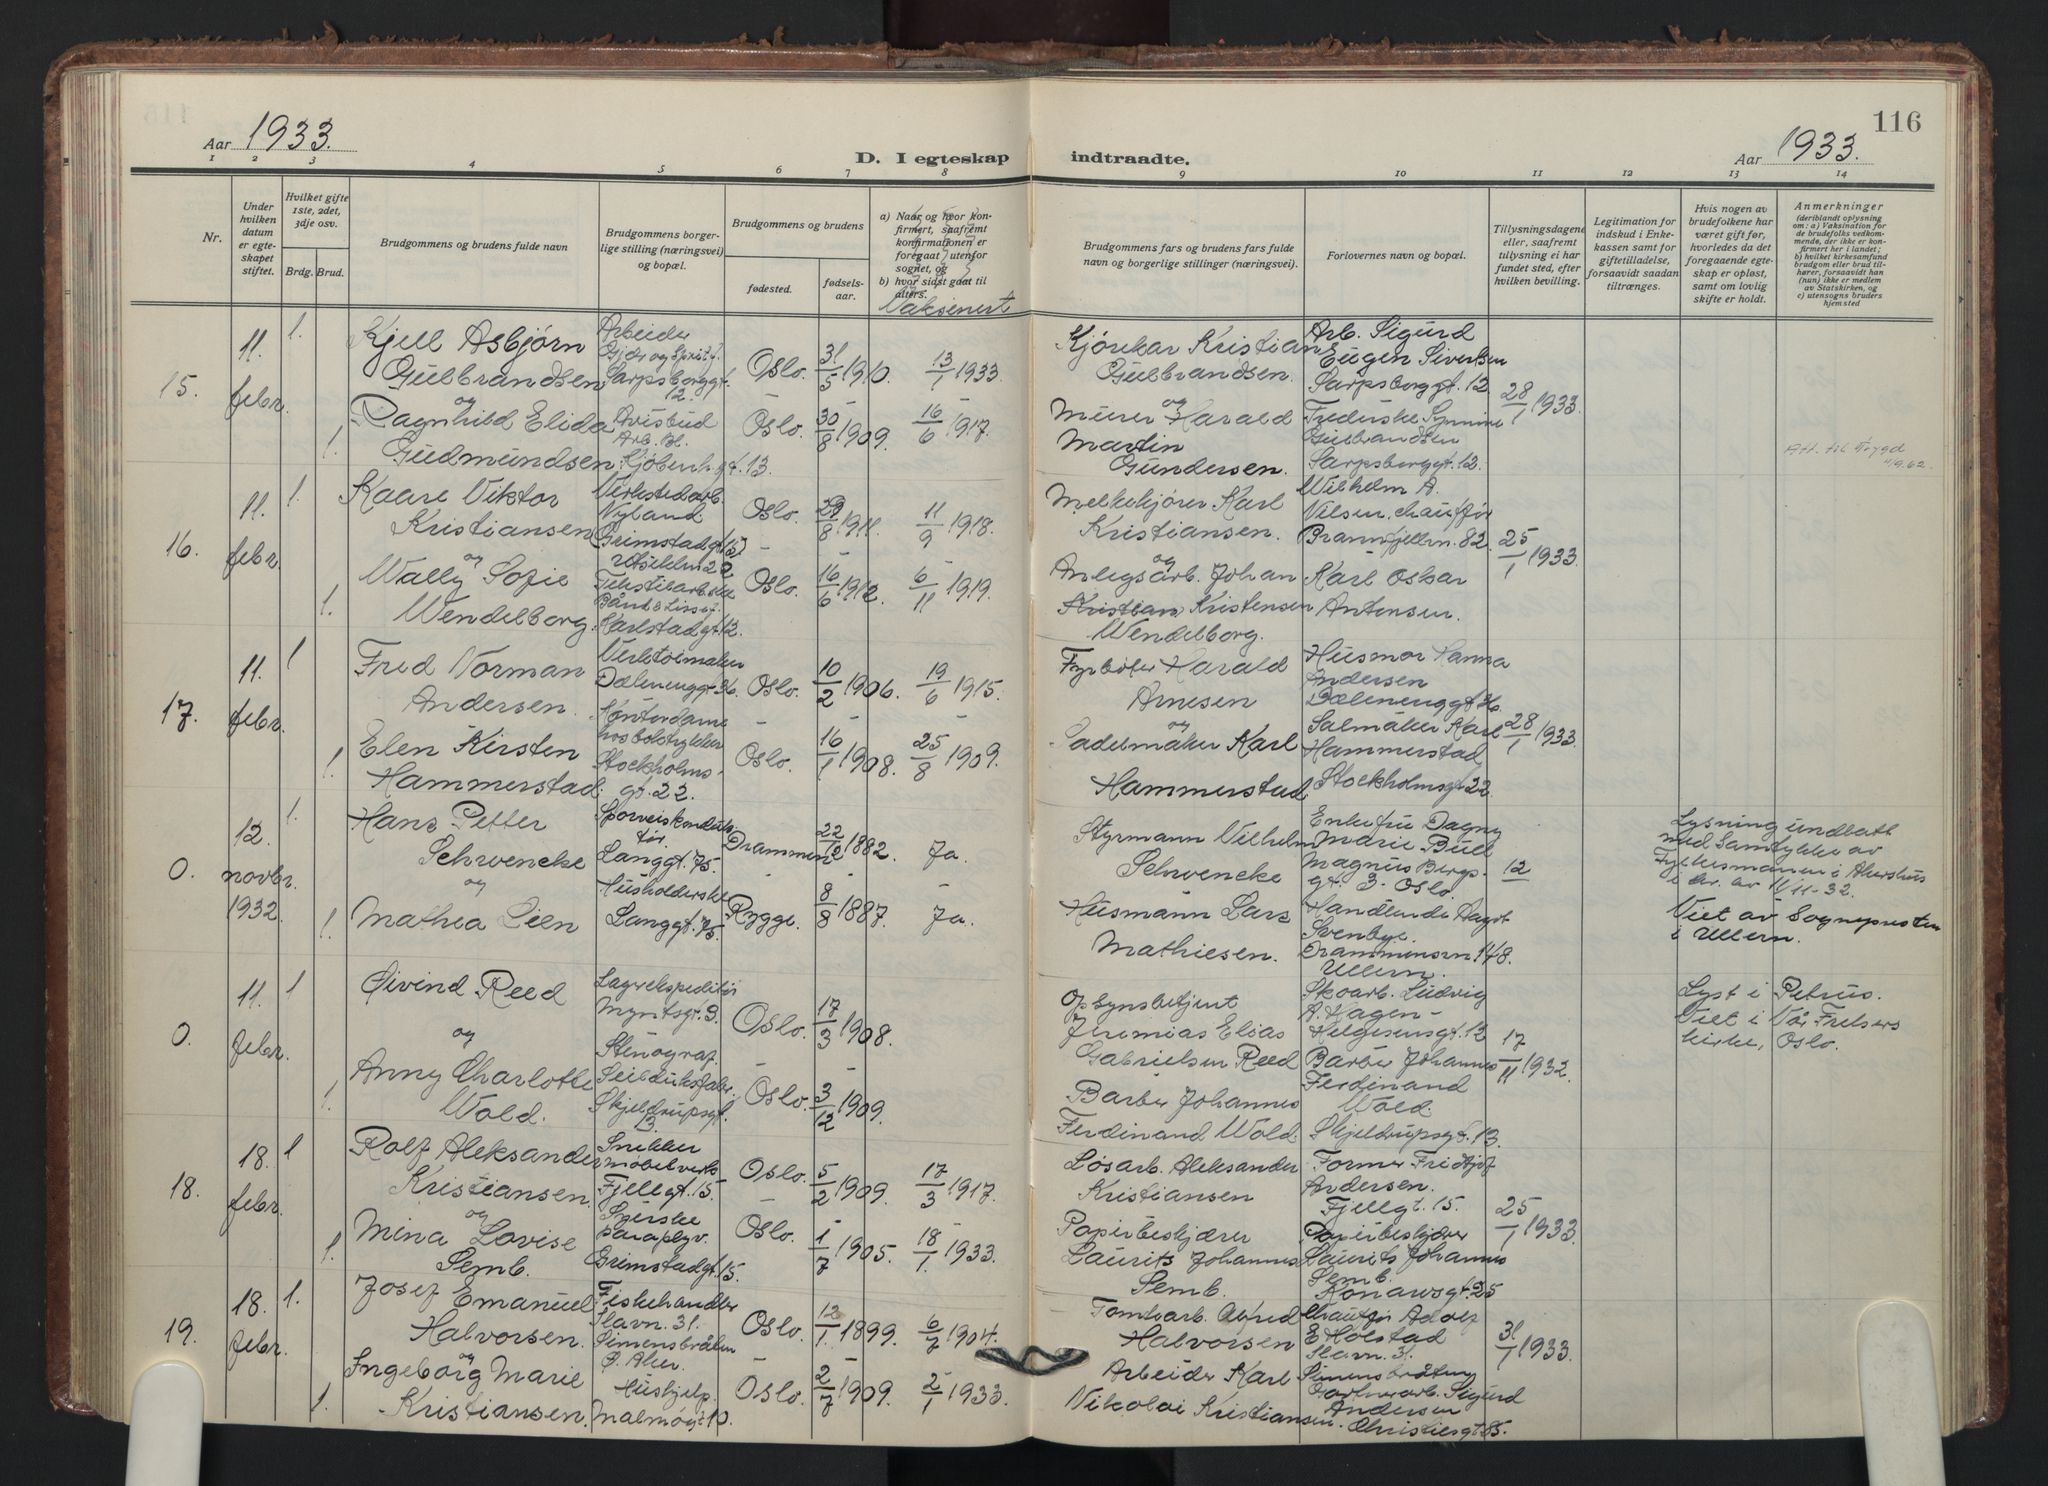 116
Aar 1933.
D. I egteskap indtraadte.
Aar 1933.
1 2 3 4 5 6 7 8 9 10 11 12 13 14
Nr.
Under hvilken datum er egteskapet stiftet.
Hvilket gifte 1ste, 2det, 3dje osv.
Brdg. Brud.
Brudgommens og brudens fulde navn
Brudgommens borgerlige stilling (næringsvei) og bopæl.
Brudgommens og brudens
fødested.
fødselsaar.
a) Naar og hvor konfirmert, saafremt konfirmationen er foregaat utenfor sognet, og
b) hvor sidst gaat til alters.
Vaksinert
Brudgommens fars og brudens fars fulde navn og borgerlige stillinger (næringsvei).
Forlovernes navn og bopæl.
Tillysningsdagene eller, saafremt tillysning ei har fundet sted, efter hvilken bevilling.
Legitimation for indskud i Enkekassen samt for giftetilladelse, forsaavidt saadan tiltrænges.
Hvis nogen av brudefolkene har været gift før, hvorledes da det foregaaende egteskap er opløst, samt om lovlig skifte er holdt.
Anmerkninger
(deriblandt oplysning om: a) Vaksination for de brudefolks vedkommende, der ikke er konfirmert her i landet; b) hvilket kirkesamfund brudgom eller brud tilhører, forsaavidt han (hun) ikke er medlem av Statskirken, og c) utensogns bruders hjemsted
15. 11. febr. 1. 1.
Kjell Asbjørn
Gulbrandsen
og
Ragnhild Elida
Gudmundsen
Arbeider
Sarpsborggt.
12.
Kjøbenh.gt. 13.
Oslo. 31/5 1910. 13/1 1933.
Oslo. 30/8 1909. 16/6 1917.
Kristian
Gulbrandsen.
og
Murer Harald
Martin
Gundersen.
Arb. Sigurd
Eugen Sivertsen
Sarpsborggt. 12
Gulbrandsen
Sarpsborggt. 12.
28/1 1933.
Att. til Trygd
16. 11. febr. 1. 1.
Kaare Viktor
Kristiansen
og
Wally Sofie
Wendelborg.
Verkstedarb.
Nyland.
Grimstadgt.
Karlstadgt. 12.
Oslo. 29/8 1911. 11/9 1918.
Oslo. 16/6 1912. 6/11 1919.
Melkekjører Karl
Kristiansen.
og
Anlegsarb. Johan
Kristian Kristensen
Wendelborg.
Wilhelm A.
Nilsen, chauffør
Brannfjellvn. 82.
Karl Oskar
Antonsen.
25/1 1933.
17. 11. febr. 1 1.
Fred Norman
Andersen.
Elen Kirsten
Hammerstad.
Verktøimaker
Dælenenggt. 36.
Kontordame
Stockholms-
gt. 22.
Oslo. 10/2 1906. 19/6 1915.
Oslo. 16/1 1908. 25/8 1909.
Fyrbøter Harald
Arnesen
og
Sadelmaker Karl
Hammerstad.
Husmor Hanna
Andersen
Dælenenggt. 36.
Salmaker Karl
Hammerstad
Stockholmsgt. 22
28/1 1933.
0. 12. novbr. 1932. 1. 1.
Hans Petter
Schwencke
og
Mathea Lien
Sporveiskonduk-
tør.
Langgt. 75.
Husholderske
Langgt. 75.
Drammen 22/12 1882. Ja.
Rygge. 8/8 1887. Ja.
Styrmann Vilhelm
Schwencke
Husmann Lars
Mathiesen.
Enkefru Dagny
Marie Bull
Magnus Bergs-
gt. 3. Oslo.
Svenbye.
Drammensvn 148.
Ullern.
12
Lysning undlatt
med samtykke av
Fylkesmannen i Akershus
i br. av 11/11-32.
Viet av Sognepresten
i Ullern.
0. 11. febr. 1 1.
Øivind Reed
og
Anny Charlotte
Wold.
Lagerekspeditør
Myntsgt. 3.
Stenograf
Seilduksfabr.
Skjeldrupsgt.
13.
Oslo. 17/3 1908.
Oslo. 3/12 1909.
Opsynsbetjent
Jeremias Elias
Gabrielsen Reed
Barber Johannes
Ferdinand Wold.
Skoarb. Ludvig
A. Hagen-
Helgesensgt. 12
Barber Johannes
Ferdinand
Wold.
Skjeldrupsgt. 13.
17/11 1932.
Lyst i Petrus.
Viet i Vår Frelsers
kirke, Oslo.
18. 18. febr. 1 1.
Rolf Aleksander
Kristiansen
og
Mina Lovise
Semb.
Snikker
møbelverk.
Fjellgt. 15.
Syerske
paraplyv.
Grimstadgt. 15.
Oslo. 5/2 1909. 17/3 1917.
Oslo. 1/7 1905. 18/1 1933.
Løsarb. Aleksander
Kristiansen
Papirbeskjærer
Laurits Johannes
Semb.
Former Fridtjof
Andersen.
Fjellgt. 15.
Papirbeskjærer
Laurits Johannes
Semb.
25/1 1933.
19. 18. febr. 1. 1.
Josef Emanuel
Halvorsen.
og
Ingeborg Marie
Kristiansen.
Fiskehandler
Simensbråten
Ø. Aker.
Hushjelp
Malmøgt. 10.
Oslo. 12/1 1899. 6/7 1904.
Oslo. 2/7 1909. 2/1 1933.
Tomtearb. Alfred
Halvorsen
Arbeider Karl
Nikolai Kristiansen.
Chauffør Adolf
Simensbråten
Gartnerarb. Sigurd
Andersen
Christiesgt. 85.
31/1 1933.